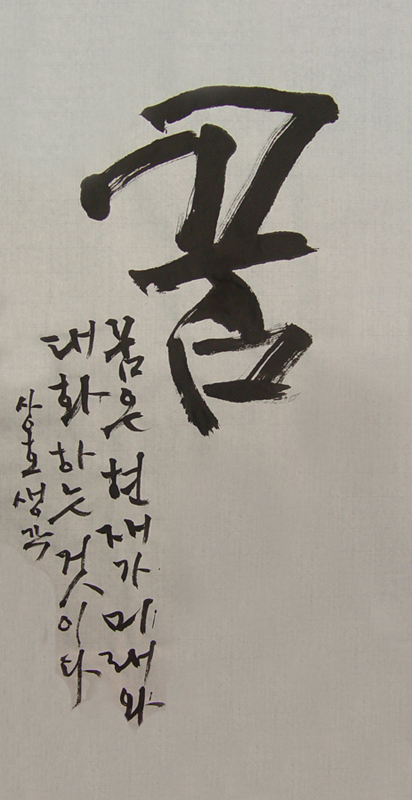 꿈
꿈은 현재가 미래와
대화 하는 것이다
상호 생각